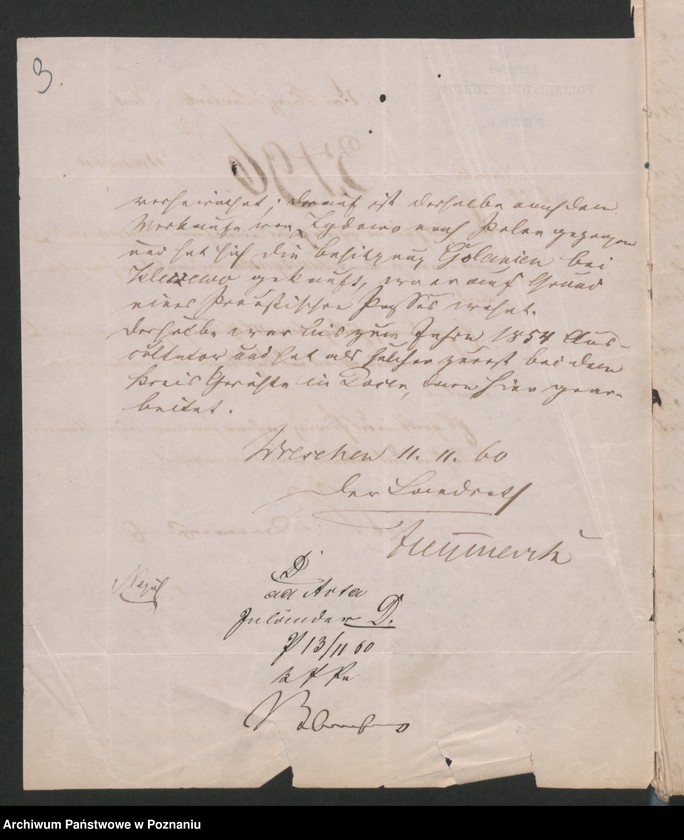 3.
verheirathet; darauf ist derselbe nach dem
Verkaufe von Lydowo nach Polen gezogen
und hat sich die Besitzung Golanien bei
Kleczewo gekauft, wo er auf Grund
eines Preußischen Passes wohnt.
Derselbe war bis zum Jahre 1854 Aus-
cultator und hat als solcher zuerst bei dem
Kreis Gerichte in Posen, dann hier gear-
beitet.
Wreschen 11. 11. 60
Der Landrath
D
ad Acta
Inländer D.
P 13/11 60
Archiwum Państwowe w Poznaniu